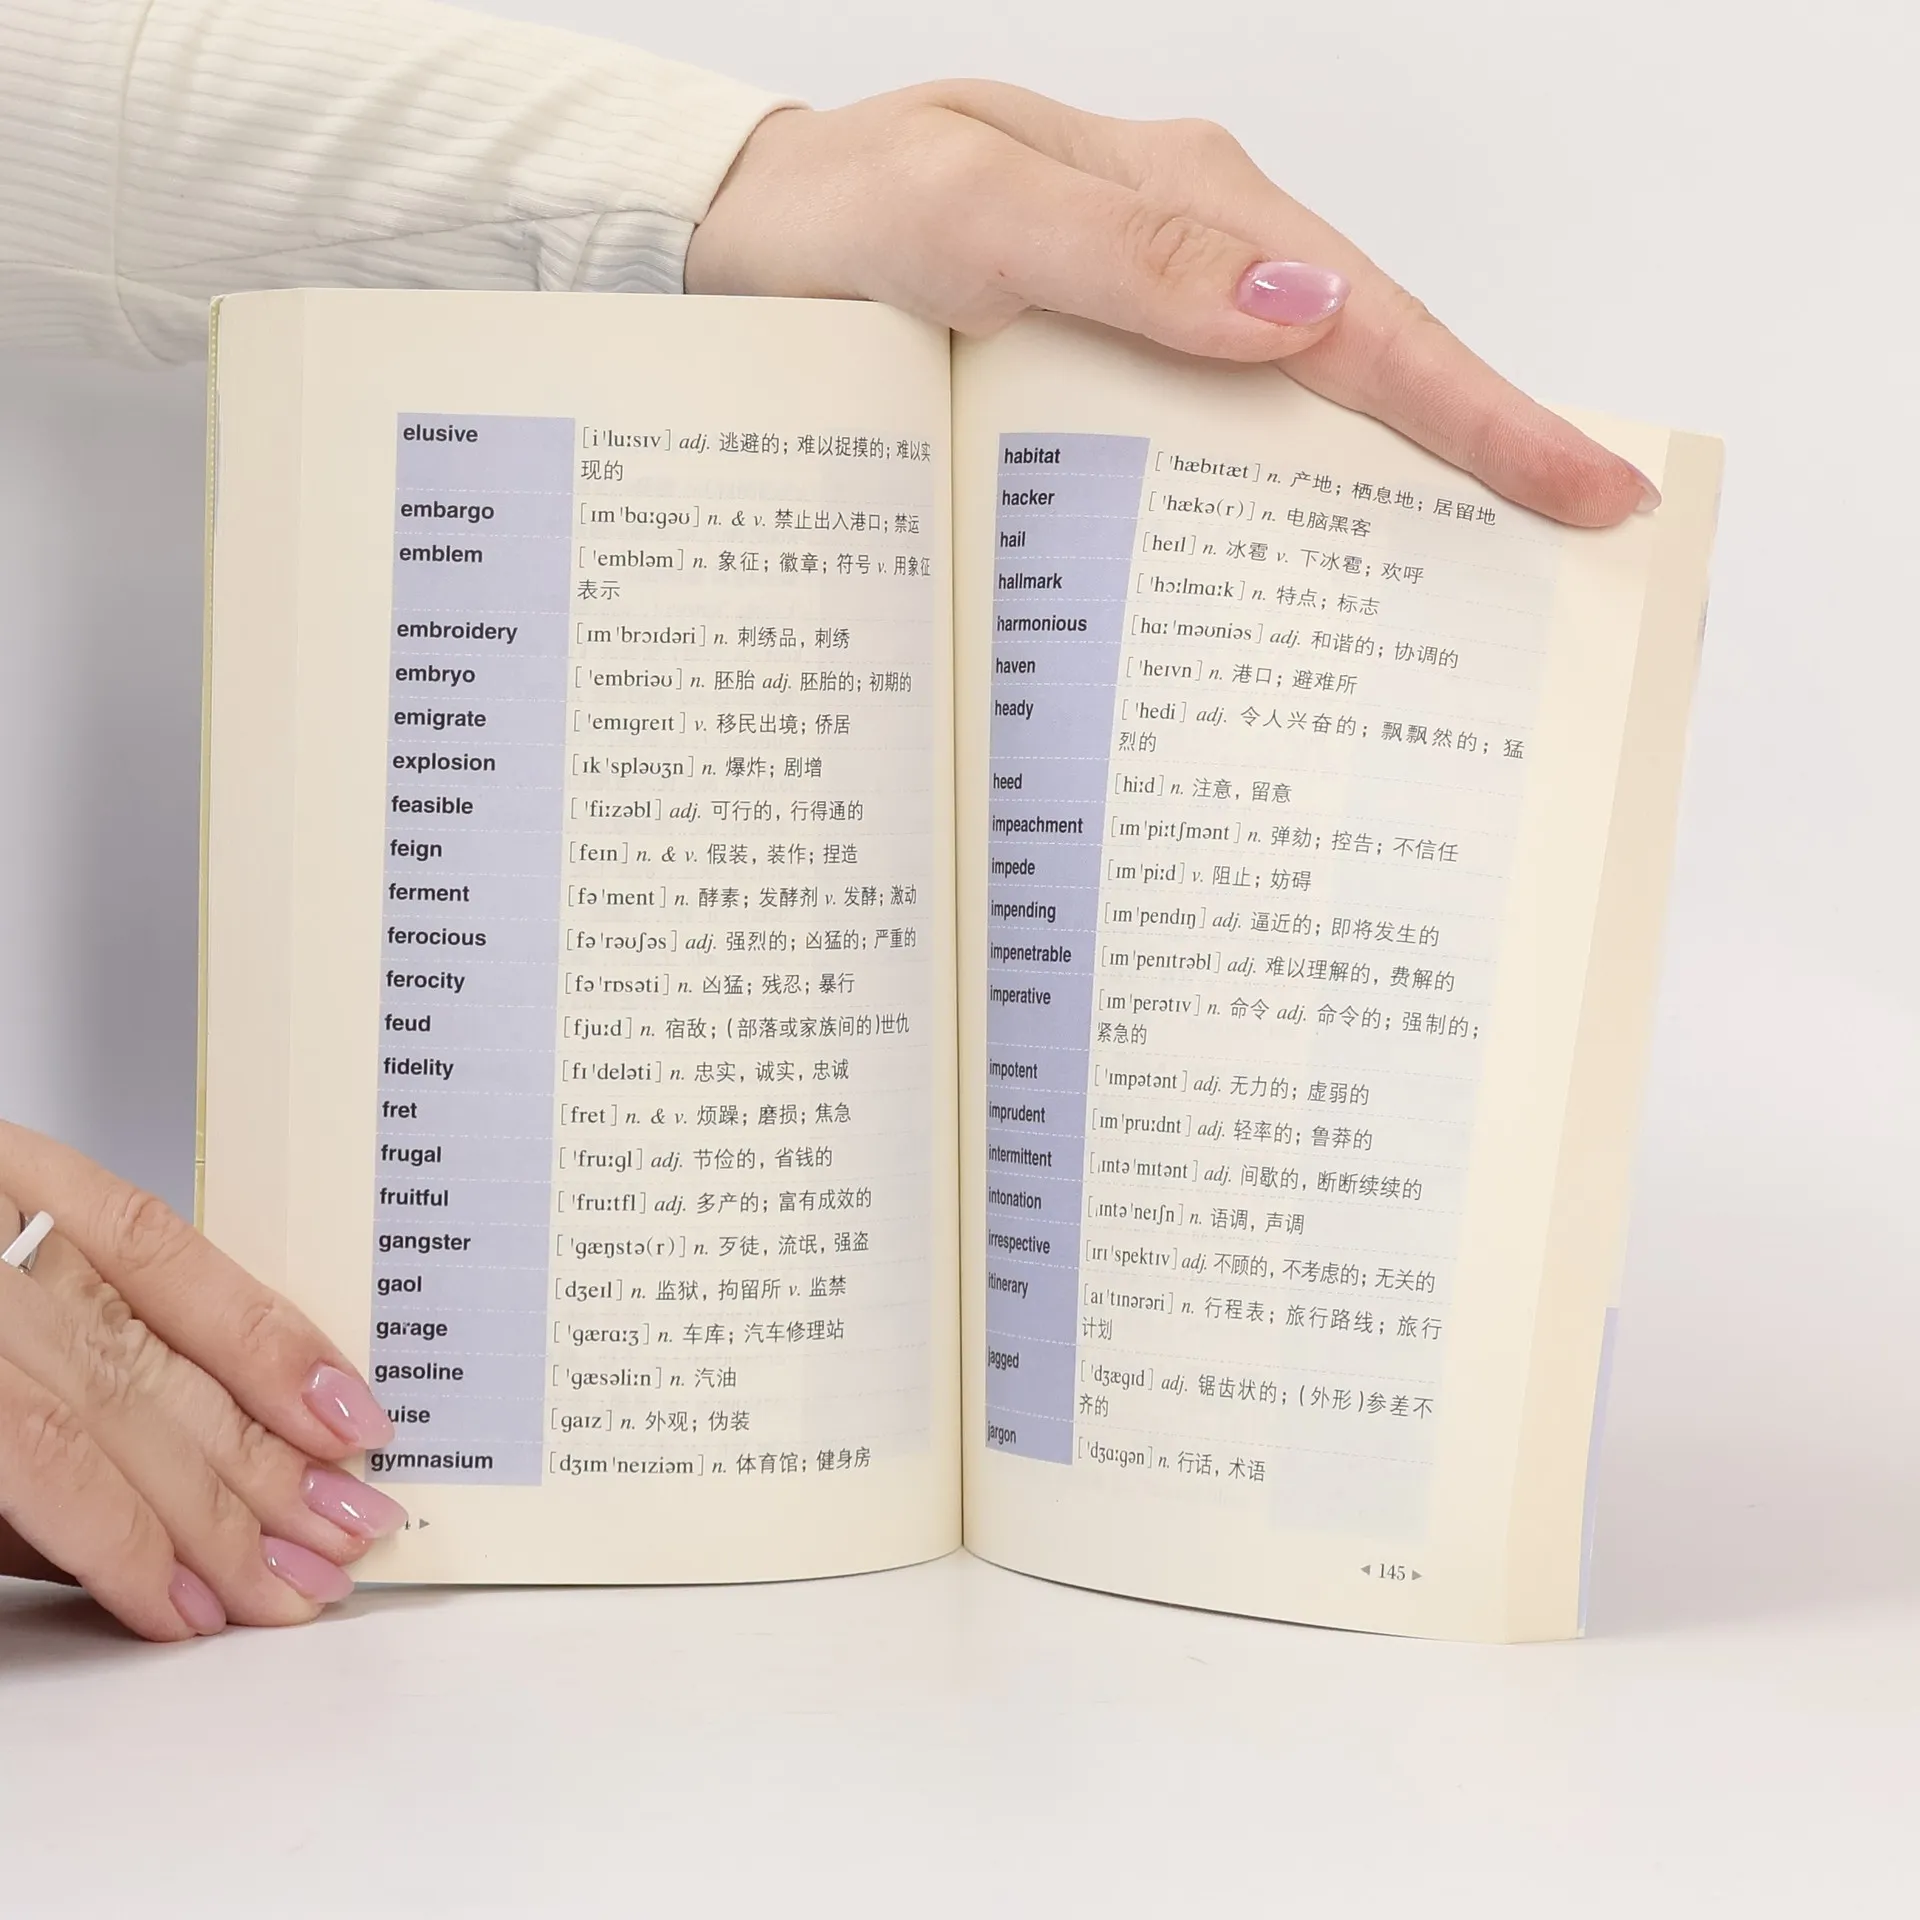 elusive [iˈluːsɪv] adj. 逃避的；难以捉摸的；难以实
现的
embargo [ɪmˈbɑːɡəʊ] n. & v. 禁止出入港口；禁运
emblem [ˈembləm] n. 象征；徽章；符号 v. 用象征
表示
embroidery [ɪmˈbrɔɪdəri] n. 刺绣品，刺绣
embryo [ˈembriəʊ] n. 胚胎 adj. 胚胎的；初期的
emigrate [ˈemɪɡreɪt] v. 移民出境；侨居
explosion [ɪkˈspləʊʒn] n. 爆炸；剧增
feasible [ˈfiːzəbl] adj. 可行的，行得通的
feign [feɪn] n. & v. 假装，装作；捏造
ferment [fəˈment] n. 酵素；发酵剂 v. 发酵；激动
ferocious [fəˈrəʊʃəs] adj. 强烈的；凶猛的；严重的
ferocity [fəˈrɒsəti] n. 凶猛；残忍；暴行
feud [fjuːd] n. 宿敌；(部落或家族间的)世仇
fidelity [fɪˈdeləti] n. 忠实，诚实，忠诚
fret [fret] n. & v. 烦躁；磨损；焦急
frugal [ˈfruːɡl] adj. 节俭的，省钱的
fruitful [ˈfruːtfl] adj. 多产的；富有成效的
gangster [ˈɡæŋstə(r)] n. 歹徒，流氓，强盗
gaol [dʒeɪl] n. 监狱，拘留所 v. 监禁
garage [ˈɡærɑːʒ] n. 车库；汽车修理站
gasoline [ˈɡæsəliːn] n. 汽油
uise [ɡaɪz] n. 外观；伪装
gymnasium [dʒɪmˈneɪziəm] n. 体育馆；健身房
4 ▶
habitat [ˈhæbɪtæt] n. 产地；栖息地；居留地
hacker [ˈhækə(r)] n. 电脑黑客
hail [heɪl] n. 冰雹 v. 下冰雹；欢呼
hallmark [ˈhɔːlmɑːk] n. 特点；标志
harmonious [hɑːˈməʊniəs] adj. 和谐的；协调的
haven [ˈheɪvn] n. 港口；避难所
heady [ˈhedi] adj. 令人兴奋的；飘飘然的；猛
烈的
heed [hiːd] n. 注意，留意
impeachment [ɪmˈpiːtʃmənt] n. 弹劾；控告；不信任
impede [ɪmˈpiːd] v. 阻止；妨碍
impending [ɪmˈpendɪŋ] adj. 逼近的；即将发生的
impenetrable [ɪmˈpenɪtrəbl] adj. 难以理解的，费解的
imperative [ɪmˈperətɪv] n. 命令 adj. 命令的；强制的；
紧急的
impotent [ˈɪmpətənt] adj. 无力的；虚弱的
imprudent [ɪmˈpruːdnt] adj. 轻率的；鲁莽的
intermittent [ˌɪntəˈmɪtənt] adj. 间歇的，断断续续的
intonation [ˌɪntəˈneɪʃn] n. 语调，声调
irrespective [ɪrɪˈspektɪv] adj. 不顾的，不考虑的；无关的
itinerary [aɪˈtɪnərəri] n. 行程表；旅行路线；旅行
计划
jagged [ˈdʒæɡɪd] adj. 锯齿状的；(外形)参差不
齐的
jargon [ˈdʒɑːɡən] n. 行话，术语
◀ 145 ▶